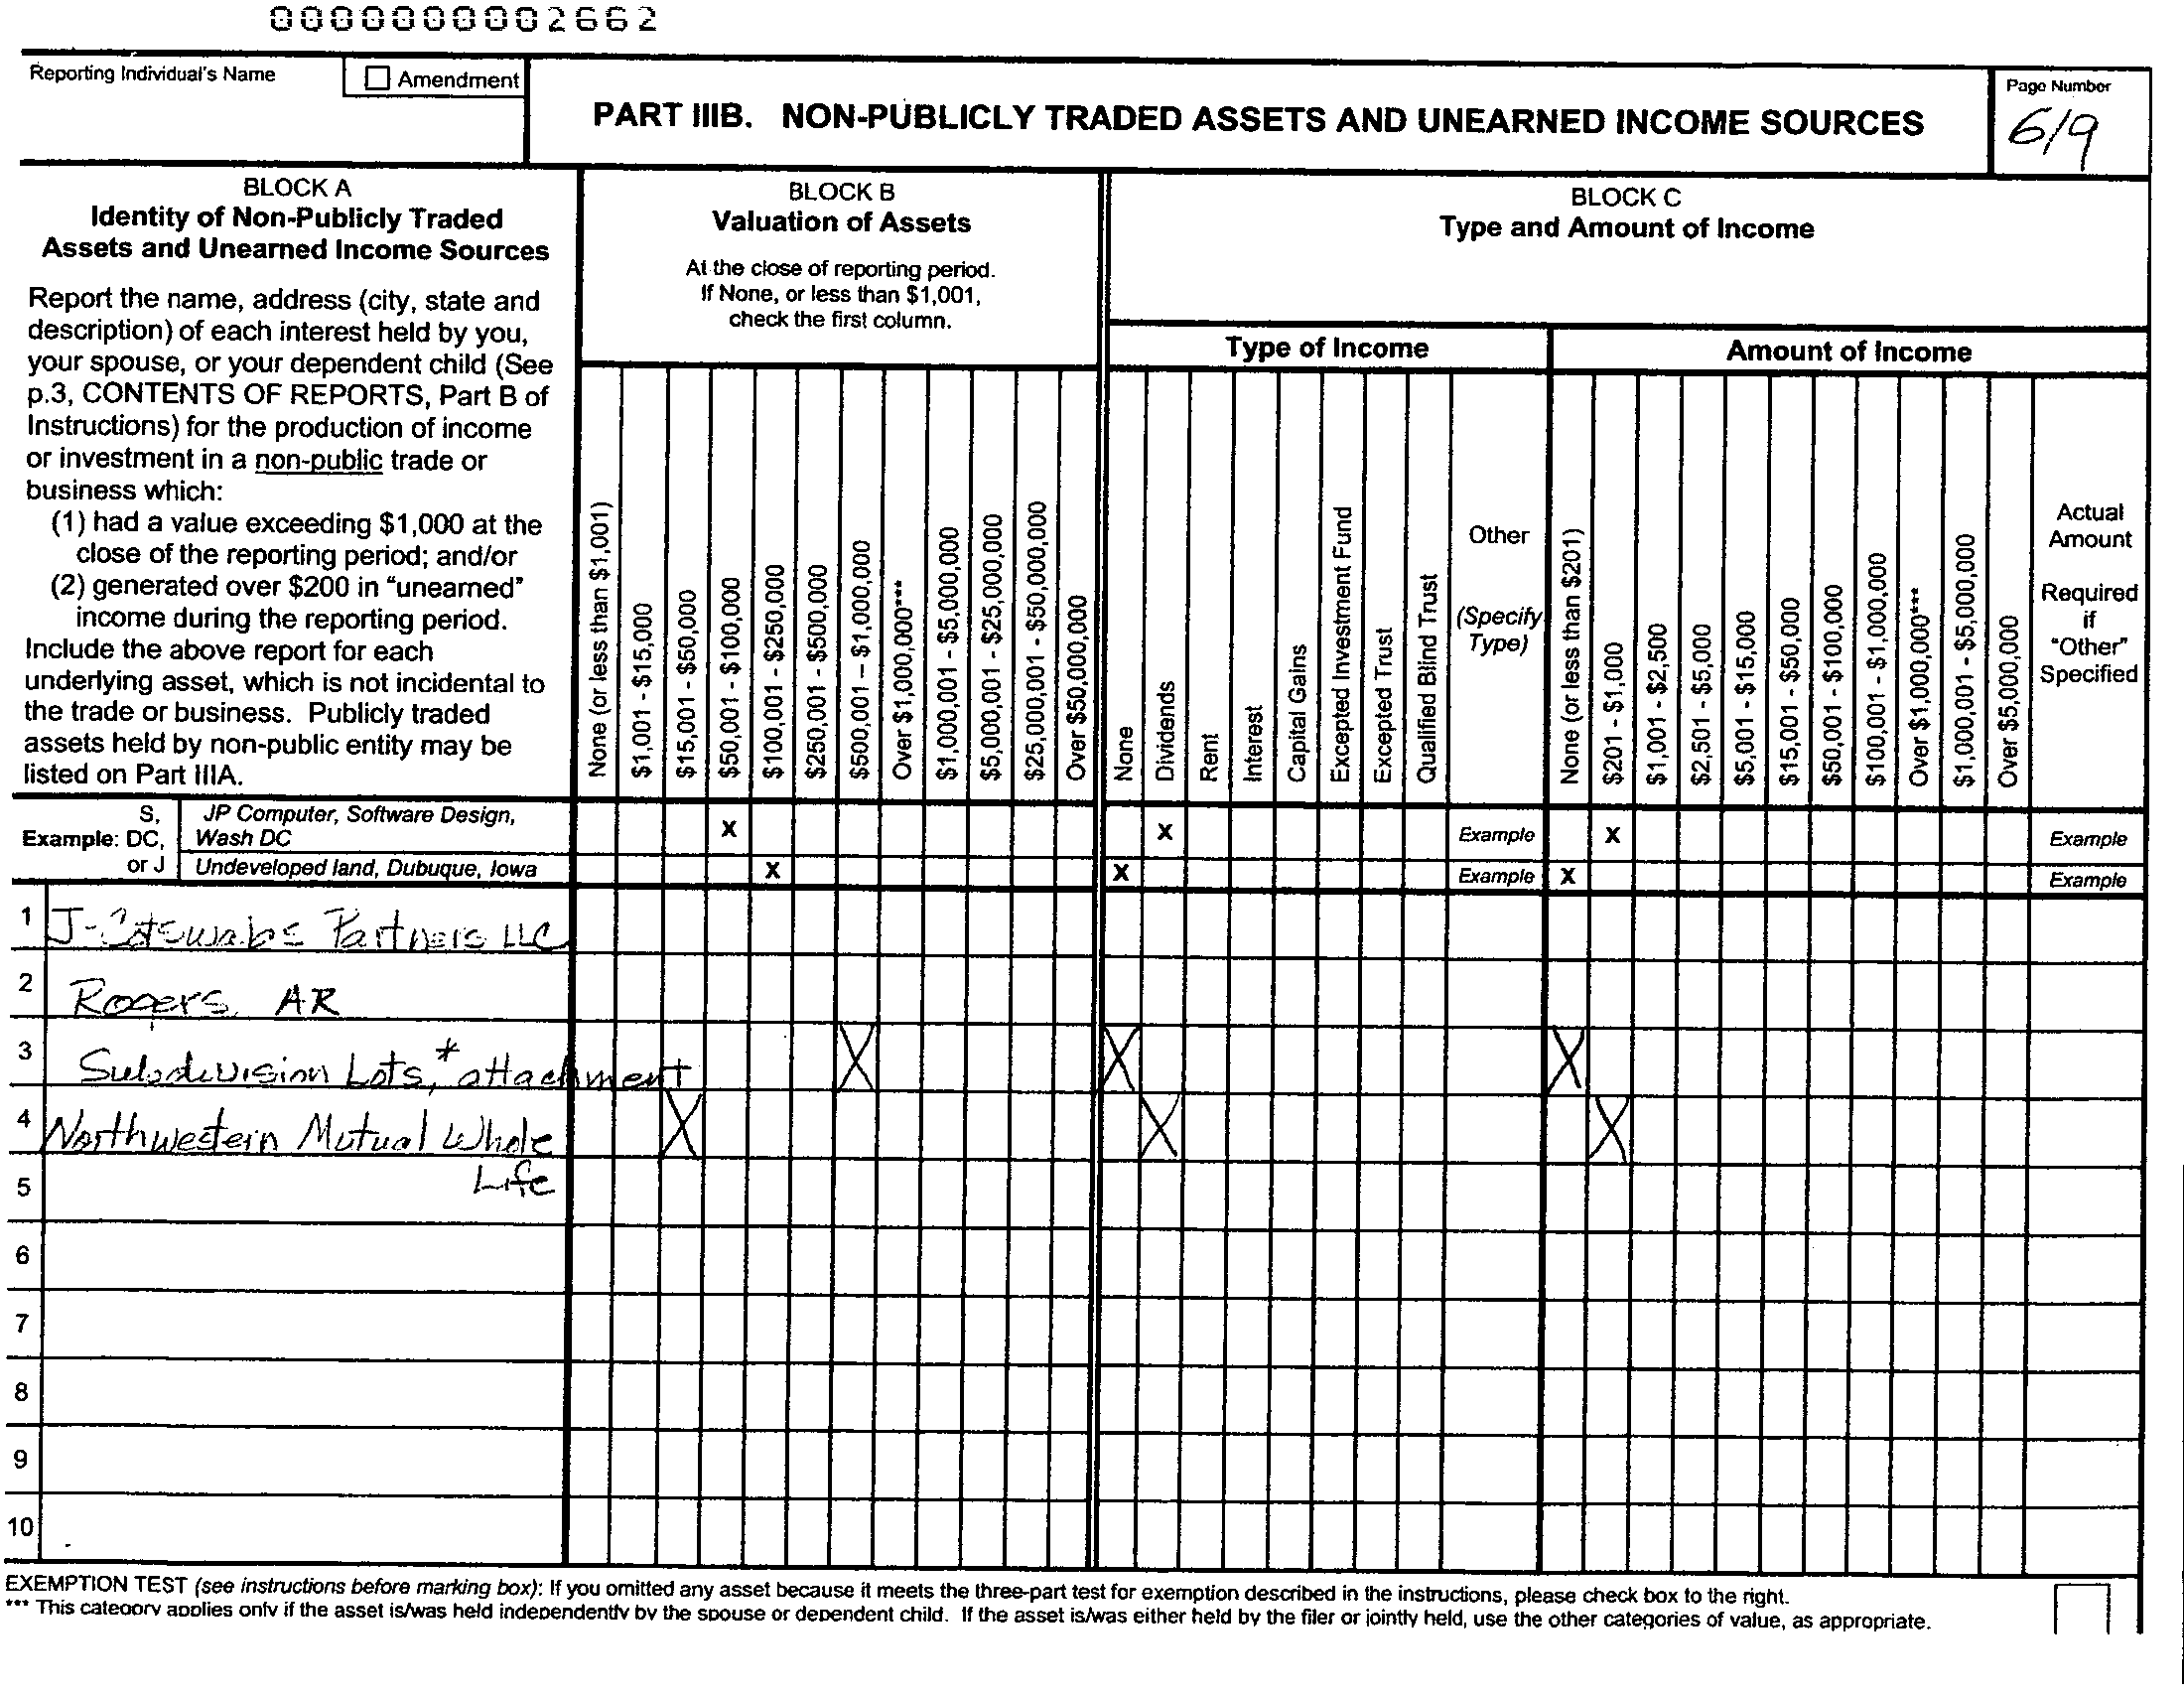 000000002662
Reporting Individual's Name
Amendment
PART IIIB. NON-PUBLICLY TRADED ASSETS AND UNEARNED INCOME SOURCES
Page Number
6/9
BLOCK A
Identity of Non-Publicly Traded
Assets and Unearned Income Sources
Report the name, address (city, state and
description) of each interest held by you,
your spouse, or your dependent child (See
p.3, CONTENTS OF REPORTS, Part B of
Instructions) for the production of income
or investment in a non-public trade or
business which:
(1) had a value exceeding $1,000 at the
close of the reporting period; and/or
(2) generated over $200 in "unearned"
income during the reporting period.
Include the above report for each
underlying asset, which is not incidental to
the trade or business. Publicly traded
assets held by non-public entity may be
listed on Part IIIA.
BLOCK B
Valuation of Assets
At the close of reporting period.
If None, or less than $1,001,
check the first column.
None (or less than $1,001)
$1,001 - $15,000
$15,001 - $50,000
$50,001 - $100,000
$100,001 - $250,000
$250,001 - $500,000
$500,001 – $1,000,000
Over $1,000,000***
$1,000,001 - $5,000,000
$5,000,001 - $25,000,000
$25,000,001 - $50,000,000
Over $50,000,000
BLOCK C
Type and Amount of Income
Type of Income
None
Dividends
Rent
Interest
Capital Gains
Excepted Investment Fund
Excepted Trust
Qualified Blind Trust
Other
(Specify
Type)
Amount of Income
None (or less than $201)
$201 - $1,000
$1,001 - $2,500
$2,501 - $5,000
$5,001 - $15,000
$15,001 - $50,000
$50,001 - $100,000
$100,001 - $1,000,000
Over $1,000,000***
$1,000,001 - $5,000,000
Over $5,000,000
Actual
Amount
Required
if
"Other"
Specified
S,
Example: DC,
or J
JP Computer, Software Design,
Wash DC
X X Example X Example
Undeveloped land, Dubuque, Iowa X X Example X Example
1 J- Partners LLC
2 Rogers, AR
3 Subdivision Lots,* attachment X X X
4 Northwestern Mutual Whole X X X
5 Life
6
7
8
9
10
EXEMPTION TEST (see instructions before marking box): If you omitted any asset because it meets the three-part test for exemption described in the instructions, please check box to the right.
*** This category applies only if the asset is/was held independently by the spouse or dependent child. If the asset is/was either held by the filer or jointly held, use the other categories of value, as appropriate.